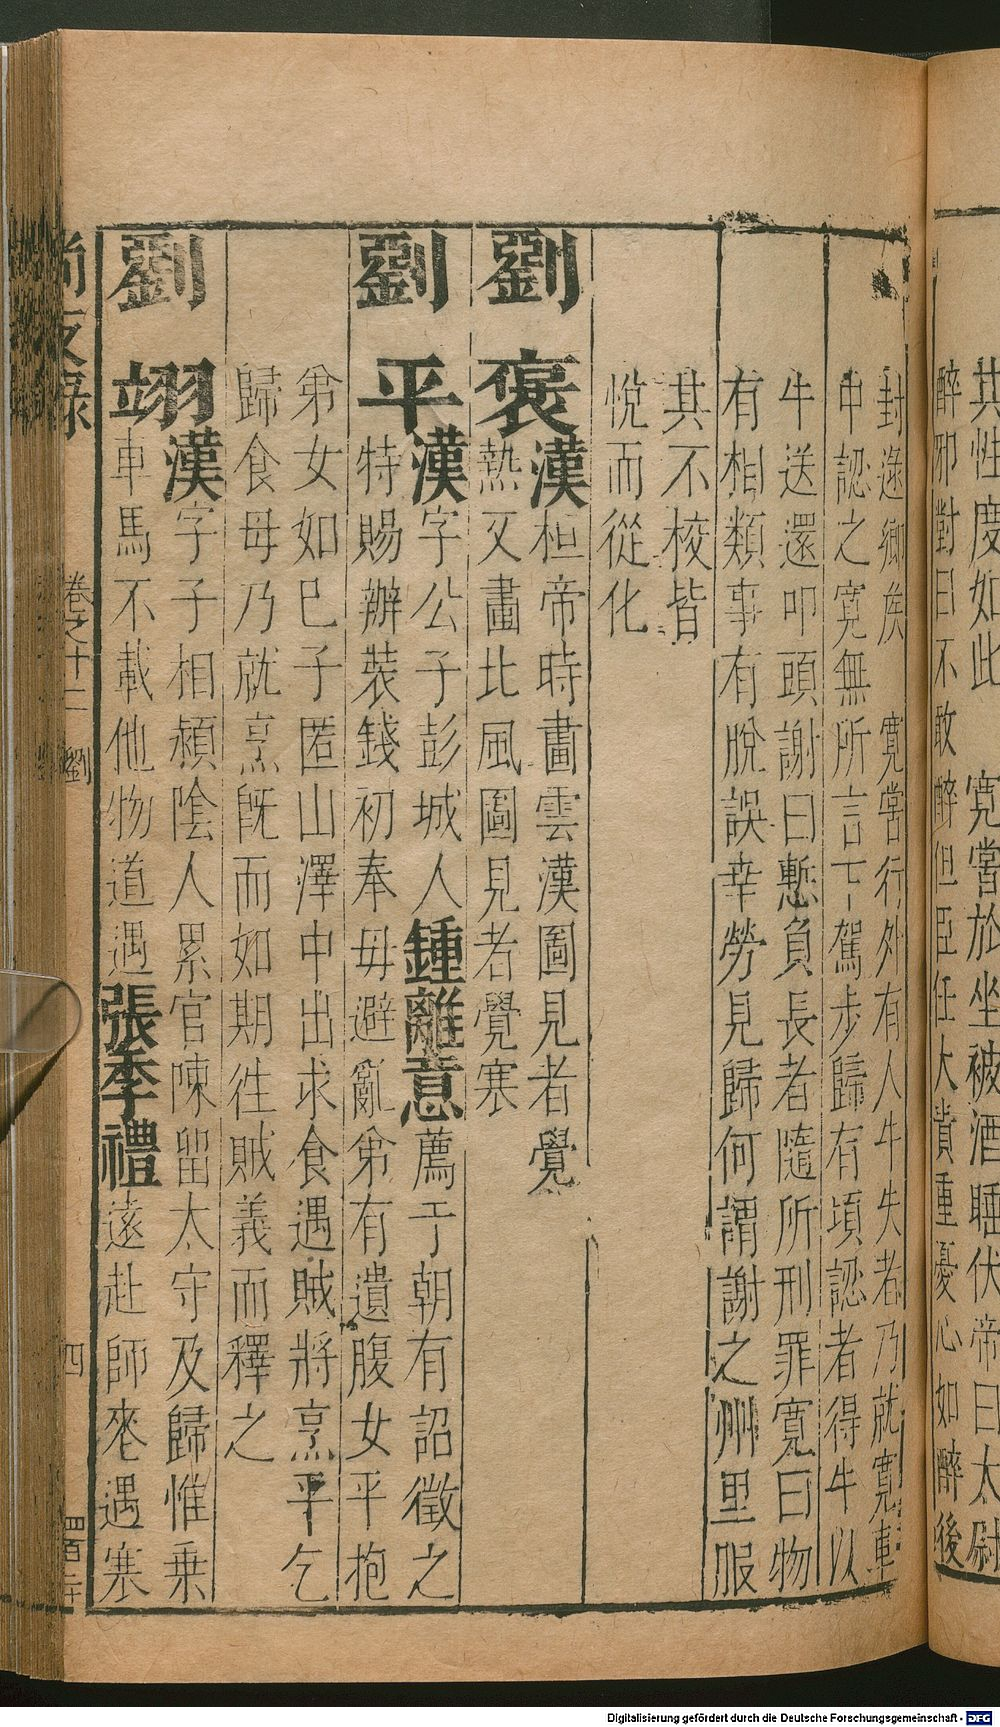 其性度如此　寬嘗於坐被酒睡伏帝曰太尉
醉邪對曰不敢醉但臣任大責重憂心如醉後
封逯鄉侯　寬嘗行外有人牛失者乃就寬車
中認之寬無所言下駕步歸有頃認者得牛以
牛送還叩頭謝曰慙負長者隨所刑罪寬曰物
有相類事有脫誤幸勞見歸何謂謝之州里服
其不校皆
悅而從化
劉褒漢桓帝時畫雲漢圖見者覺
熱又畫北風圖見者覺寒
劉平漢字公子彭城人鍾離意薦于朝有詔徵之
特賜辦裝錢初奉母避亂弟有遺腹女平抱
弟女如己子匿山澤中出求食遇賊將烹平乞
歸食母乃就烹既而如期徃賊義而釋之
劉翊漢字子相潁陰人累官陳留太守及歸惟乗
車馬不載他物道遇張季禮遠赴師喪遇寒
尚友錄
卷之十二
劉
四
四百二十
Digitalisierung gefördert durch die Deutsche Forschungsgemeinschaft - DFG